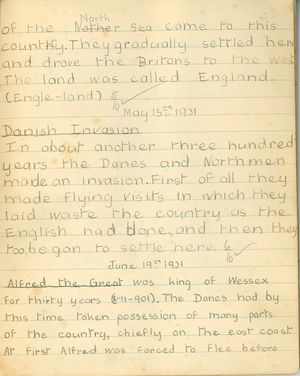 North
of the Nother Sea came to this
country. They gradually settled here
and drove the Britons to the west
The land was called England.
(Engle-land) 5/10
May 15th 1931
Danish Invasion
In about another three hundred
years the Danes and Northmen
made an invasion. First of all they
made flying visits in which they
laid waste the country as the
English had done, and then they
too began to settle here. 6/10
June 19th 1931
Alfred the Great was king of Wessex
for thirty years (-901). The Danes had by
this time taken possession of many parts
of the country, chiefly on the east coast
At first Alfred was forced to flee before